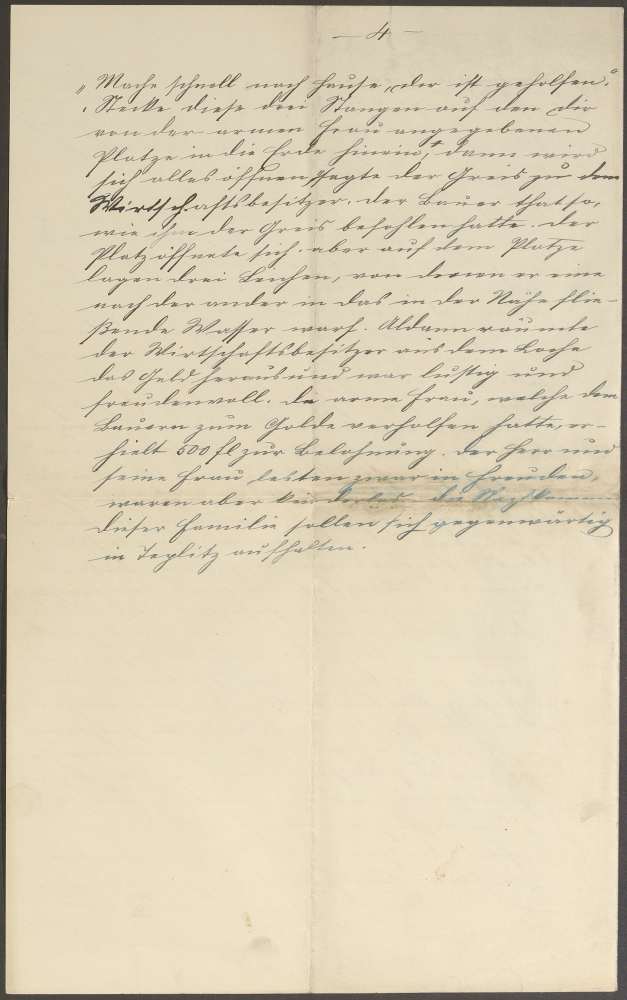 — 4 —
„Mache schnell nach Hause, dir ist geholfen.“
„Stecke diese drei Stangen auf den dir
von der armen Frau angegebenen
Platze in die Erde hinein, dann wird
sich alles öffnen“, sagte der Greis zu dem
Wirtschaftsbesitzer. Der Bauer that so,
wie ihm der Greis befohlen hatte. Der
Platz öffnete sich. aber auf dem Platze
lagen drei Leichen, von denen er eine
nach der ander in das in der Nähe flie-
ßende Wasser warf. Aldann räumte
der Wirtschaftsbesitzer aus dem Loche
das Geld heraus und war lustig und
freudenvoll. Die arme Frau, welche dem
Bauern zum Golde verholfen hatte, er-
hielt 500 fl zur Belohnung. Der Herr und
seine Frau lebten zwar in Freuden,
waren aber kinderlos. Die Nachkommen
dieser Familie sollen sich gegenwärtig
in Teplitz aufhalten.